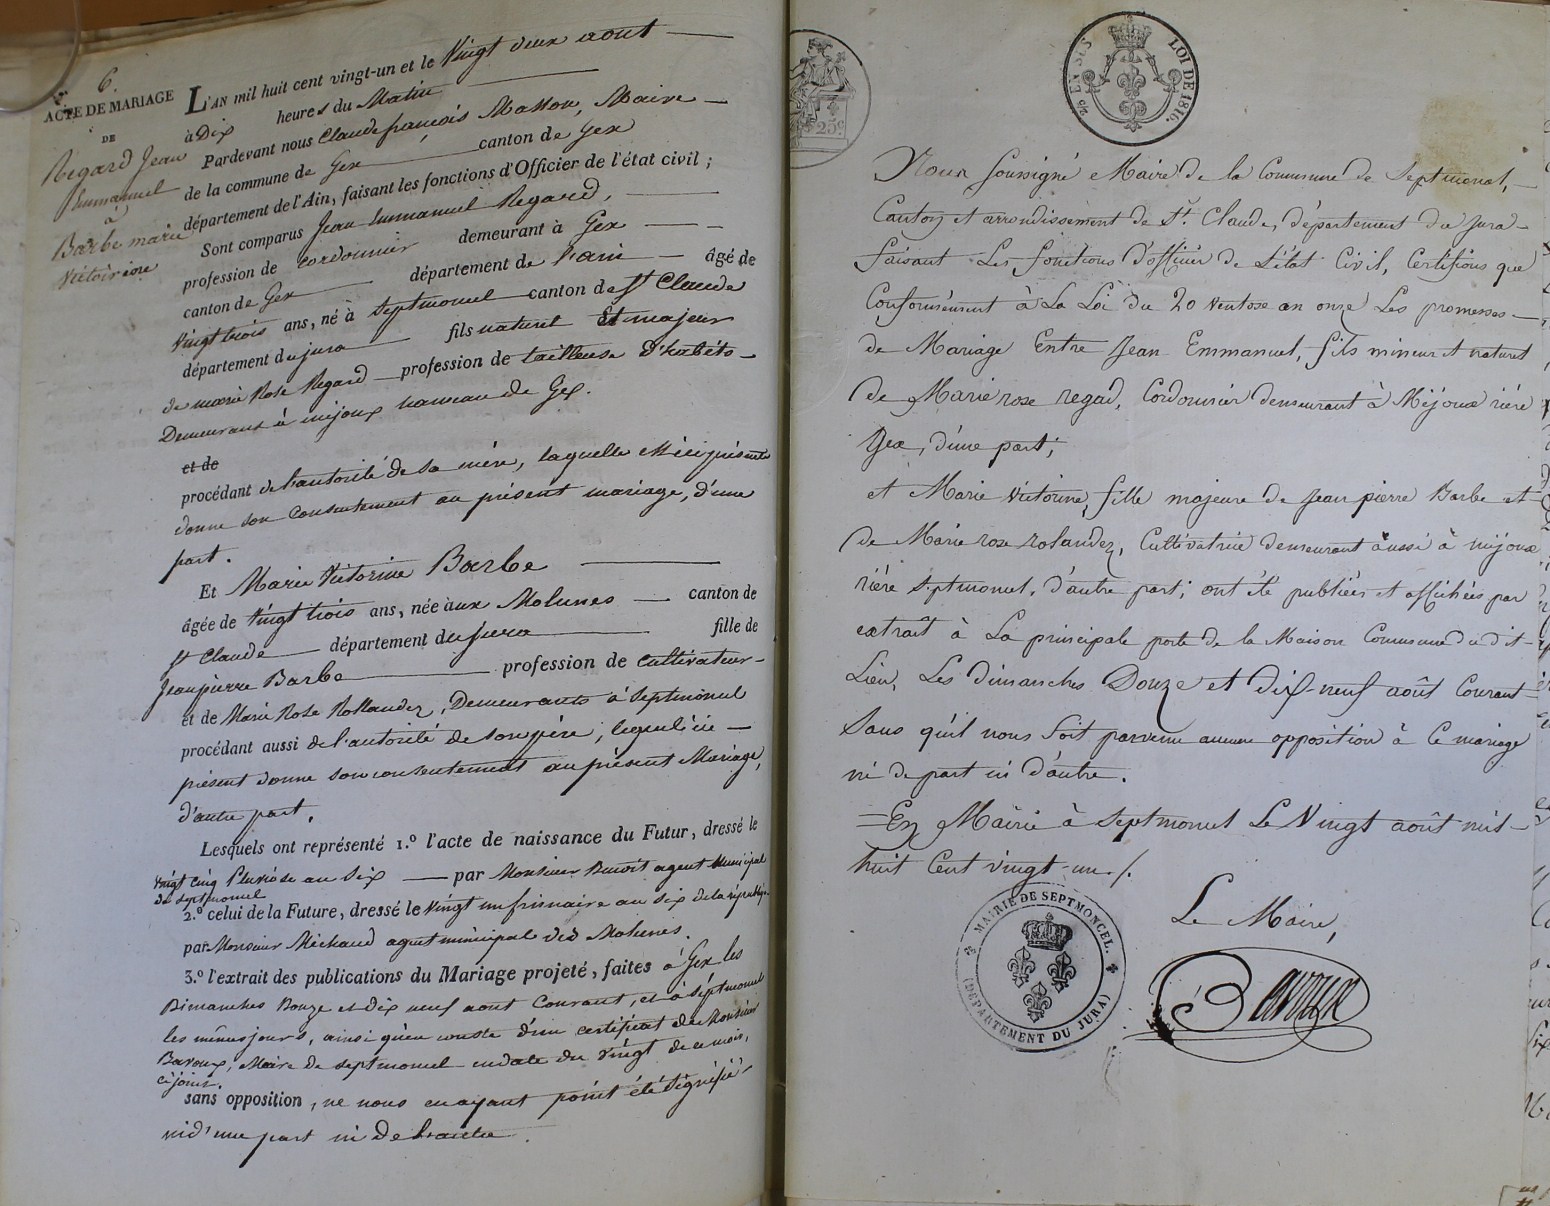 6.
ACTE DE MARIAGE
DE
Regard Jean
Emmanuel
à
Barbe marie
victoirine
L'AN mil huit cent vingt-un et le Vingt deux aout
à Dix heures du Matin
Pardevant nous Claude françois Masson, Maire
de la commune de Gex canton de Gex
département de l'Ain, faisant les fonctions d'Officier de l'état civil ;
Sont comparus Jean Emmanuel Regard,
profession de cordonnier demeurant à Gex
canton de Gex département de l'ain âgé de
vingt trois ans, né à Septmoncel canton de St Claude
département du jura fils naturel Et majeur
de marie Rose Regard profession de tailleuse d'habits
Demeurant à mijoux hameau de Gex.
et de
procédant de l'autorité de sa mère, laquelle est ici présente
donne son consentement au présent mariage, d'une
part.
Et Marie Victorine Barbe
âgée de vingt trois ans, née aux Molunes canton de
St Claude département du jura fille de
Jean pierre Barbe profession de cultivateur
et de Marie Rose Rollandez, Demeurants à Septmoncel
procédant aussi de l'autorité de son père, lequel ici
présent donne son consentement au présent Mariage,
d'autre part.
Lesquels ont représenté 1.° l'acte de naissance du Futur, dressé le
vingt cinq Pluviose an Six par Monsieur Benoit agent Municipal
de Septmoncel
2.° celui de la Future, dressé le vingt un frimaire an six de la république
par Monsieur Michaud agent municipal des Molunes.
3.° l'extrait des publications du Mariage projeté, faites à Gex les
Dimanches Douze et Dix neuf aout Courant, et à Septmoncel
les mêmes jours, ainsi qu'il conste d'un certificat de Monsieur
Bavoux, Maire de Septmoncel en date du vingt de ce mois,
ci joint.
sans opposition, ne nous en ayant point été signifié
ni d'une part ni de l'autre.
25c
EN SUS
LOI DE 1816.
Nous soussigné Maire de la Commune de Septmoncel,
Canton et arrondissement de St Claude, département du jura
faisant les fonctions d'officier de l'état Civil, Certifions que
Conformément à la loi du 20 ventose an onze les promesses
de Mariage Entre Jean Emmanuel, fils mineur et naturel
de Marie rose regad, Cordonnier demeurant à Mijoux rière
Gex, d'une part;
et Marie Victorine, fille majeure de Jean pierre Barbe et
de Marie rose rolandez, Cultivatrice demeurant aussi à mijoux
rière Septmoncel, d'autre part; ont été publiées et affichées par
extrait à la principale porte de la Maison Commune du dit
Lieu, Les dimanches Douze et dix-neuf août Courant
Sans qu'il nous soit parvenu aucune opposition à Ce mariage
ni de part ni d'autre.
En Mairie à Septmoncel Le Vingt août mil
huit Cent vingt-un.
Le Maire,
MAIRIE DE SEPTMONCEL.
(DÉPARTEMENT DU JURA)
Bavoux